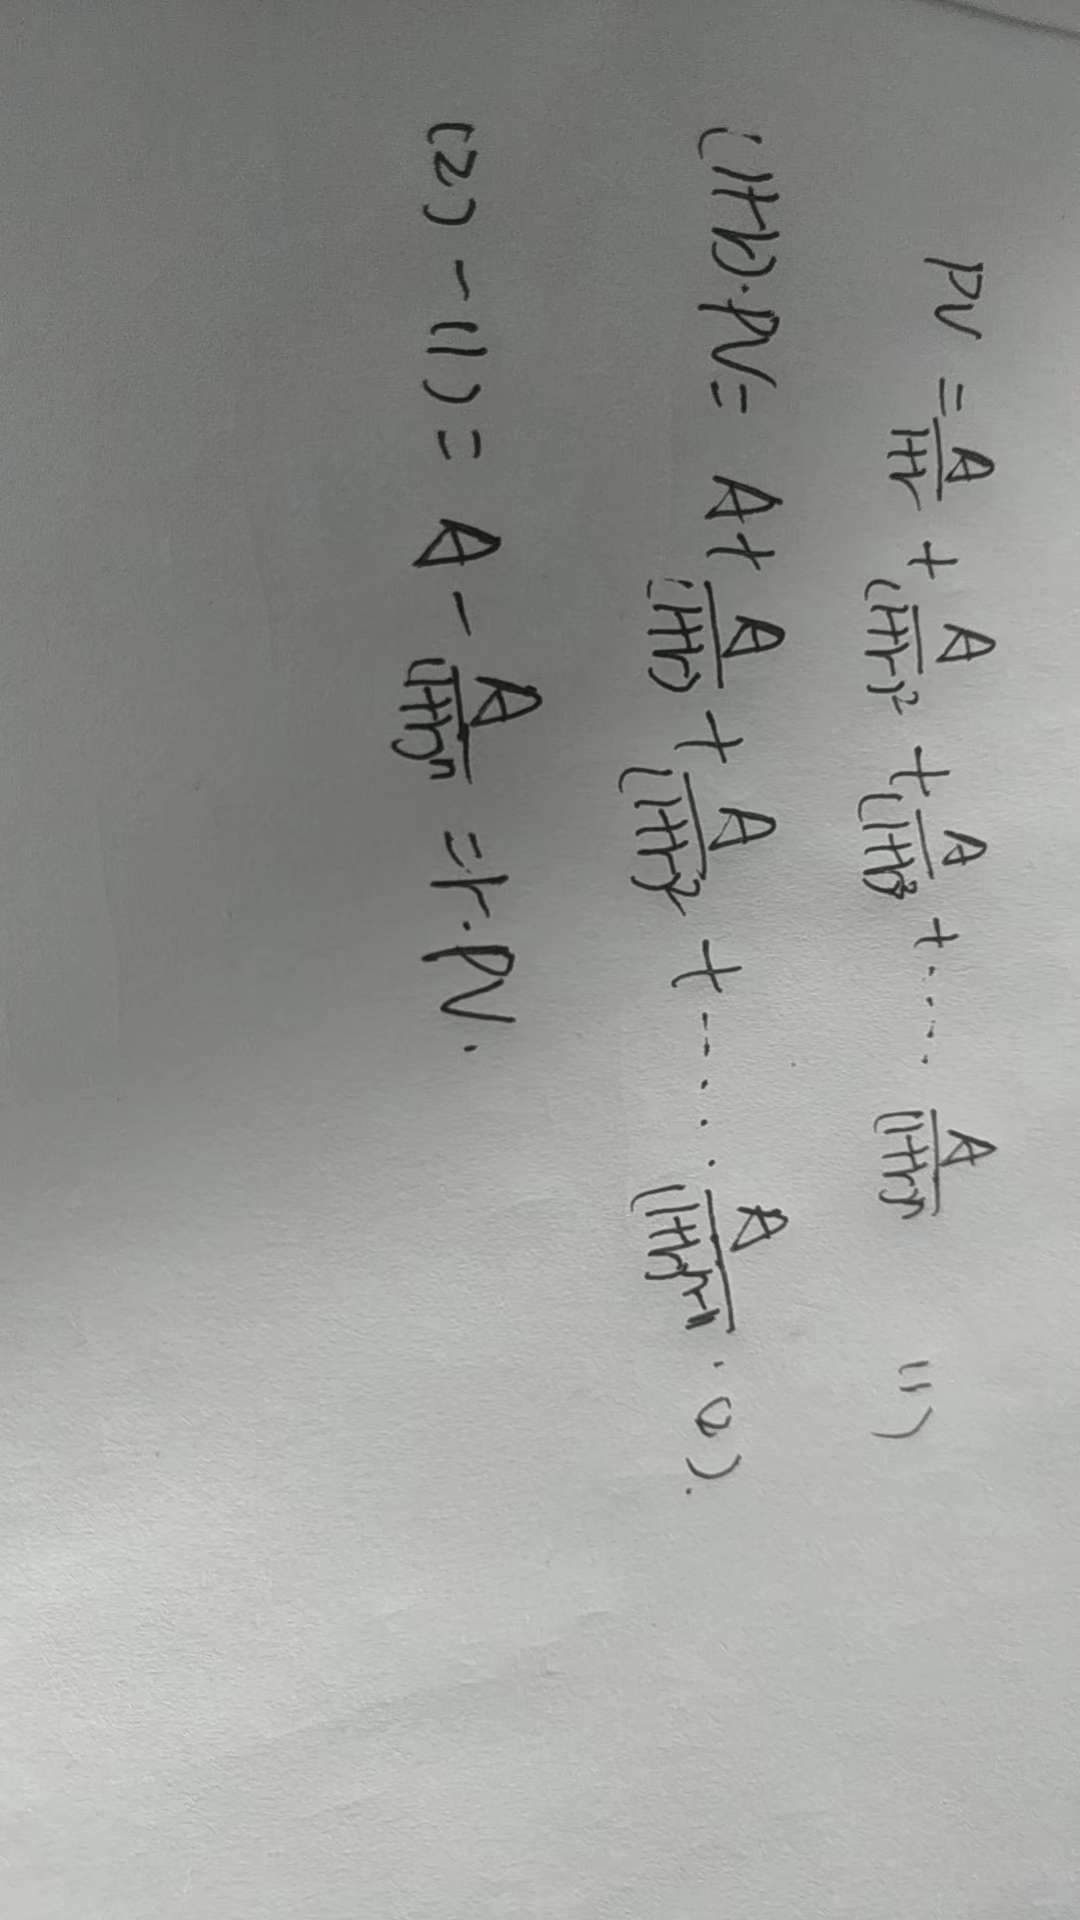 PV = A/(1+r) + A/(1+r)² + A/(1+r)³ + .... A/(1+r)ⁿ (1)
(1+r)·PV = A + A/(1+r) + A/(1+r)² + ..... A/(1+r)ⁿ⁻¹ . (2).
(2) - (1) = A - A/(1+r)ⁿ = r·PV.